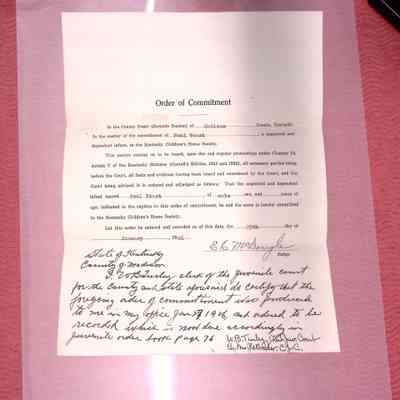 Order of Commitment
In the County Court (Juvenile Session) of Madison County, Kentucky.
In the matter of the commitment of Paul , a neglected and
dependent infant, to the Kentucky Children's Home Society.
This matter coming on to be heard, upon due and regular proceedings under Chapter
Article V of the Kentucky Statutes (Carroll's Edition, 1915 and 1922), all necessary parties being
before the Court, all facts and evidence having been heard and considered by the Court, and the
Court being advised it is ordered and adjudged as follows: That the neglected and dependent
infant named Paul of sex, and years of
age, indicated in the caption to this order of commitment, be and the same is hereby committed
to the Kentucky Children's Home Society.
Let this order be entered and recorded as of this date the day of
January
Judge
State of Kentucky
County of Madison
I, W B Turley clerk of the juvenile court
for the County and state aforesaid do certify that the
foregoing order of commitment was produced
to me in my office Jan and ordered to be
recorded which is now done accordingly in
Juvenile order book page 76
W. B. Turley, Court